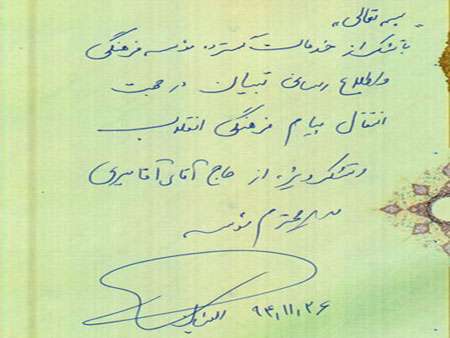 بسمه تعالی
با تشکر از خدمات گسترده مؤسسه فرهنگی
و اطلاع رسانی تبیان در جهت
انتقال پیام فرهنگی انقلاب
و تشکر ویژه از حاج آقای آقامیری
مدیر محترم مؤسسه
۹۴،۱۱،۲۶